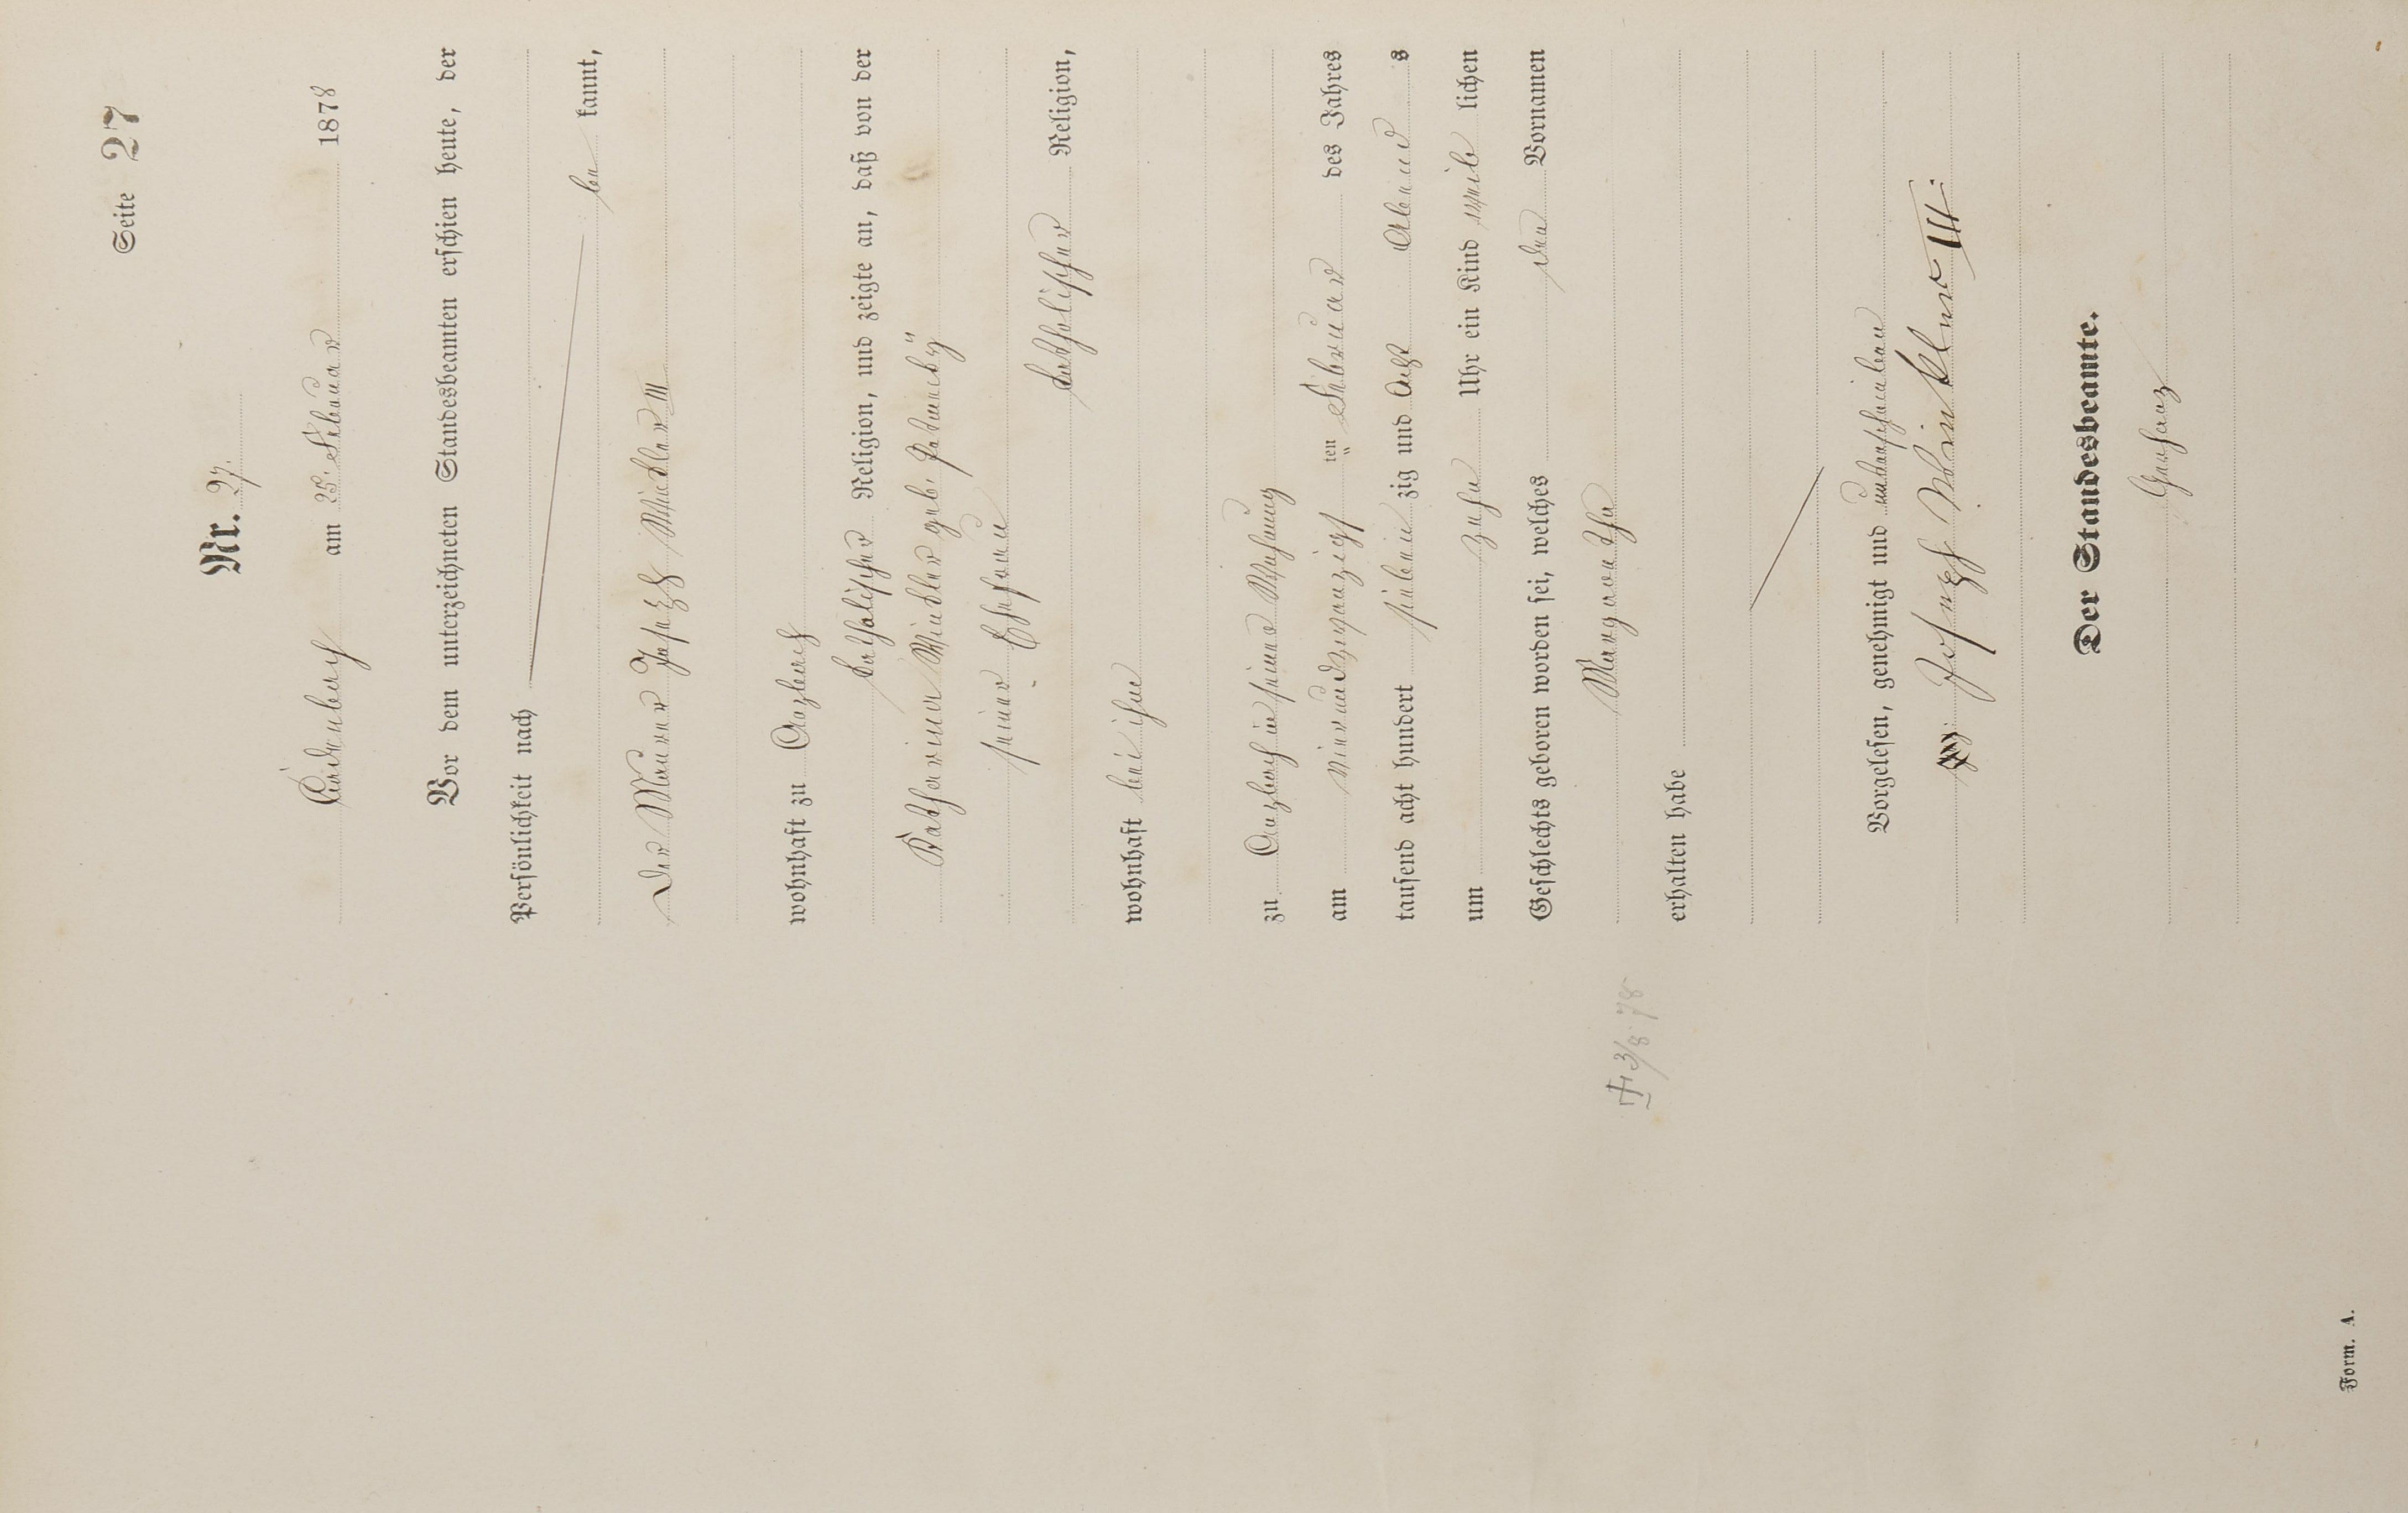 Seite 27
Nr. 27.
am 25. Februar 1878
Vor dem unterzeichneten Standesbeamten erschien heute, der
Persönlichkeit nach
be kannt,
der Maurer Joseph Winkler III
wohnhaft zu
katholischer Religion, und zeigte an, daß von der
Katharina Winkler geb.
seiner Ehefrau
katholischer Religion,
wohnhaft bei ihm
zu in seiner Wohnung
am vierundzwanzigst ten Februar des Jahres
tausend acht hundert siebenzig und acht Abend s
um zehn Uhr ein Kind weib lichen
Geschlechts geboren worden sei, welches den Vornamen
Margaretha
erhalten habe
✝ 3/8 78
Vorgelesen, genehmigt und unterschrieben
Joseph Winkler III.
Der Standesbeamte.
Form. A.